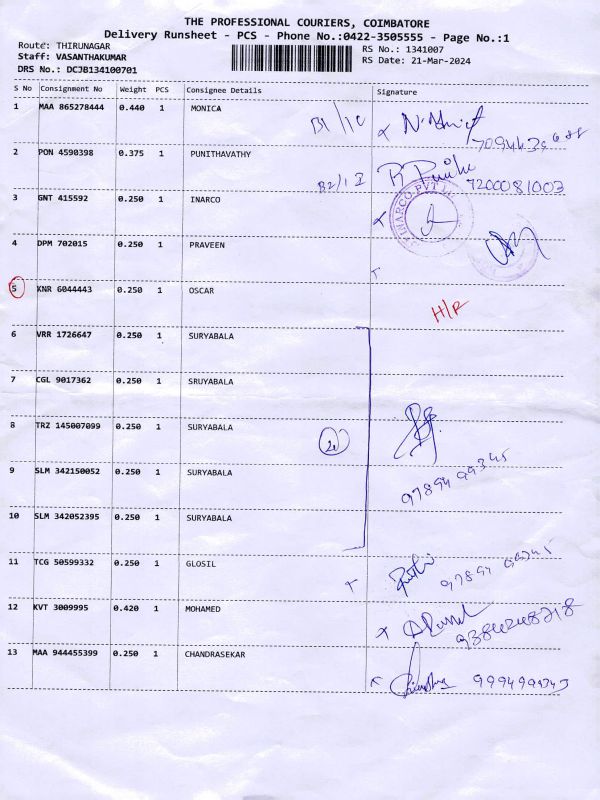 THE PROFESSIONAL COURIERS, COIMBATORE
Delivery Runsheet - PCS - Phone No.:0422-3505555 - Page No.:1
Route: THIRUNAGAR
RS No.: 1341007
Staff: VASANTHAKUMAR
RS Date: 21-Mar-2024
DRS No.: DCJB134100701
S No Consignment No Weight PCS Consignee Details Signature
1 MAA 865278444 0.440 1 MONICA
2 PON 4590398 0.375 1 PUNITHAVATHY
7200081003
3 GNT 415592 0.250 1 INARCO
INARCO PVT
4 DPM 702015 0.250 1 PRAVEEN
5 KNR 6044443 0.250 1 OSCAR H/R
6 VRR 1726647 0.250 1 SURYABALA
7 CGL 9017362 0.250 1 SRUYABALA
8 TRZ 145007099 0.250 1 SURYABALA
9 SLM 342150052 0.250 1 SURYABALA
9789499345
10 SLM 342052395 0.250 1 SURYABALA
11 TCG 50599332 0.250 1 GLOSIL
12 KVT 3009995 0.420 1 MOHAMED
13 MAA 944455399 0.250 1 CHANDRASEKAR